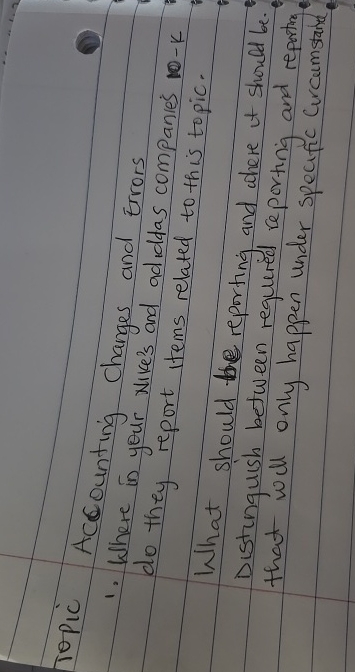 Topic
Accounting Changes and Errors
1. Where in your Nike's and adiddas companies 10-K
do they report items related to this topic.
What should be reporting and where it should be.
Distinguish between required reporting and reporting
that will only happen under specific circumstance